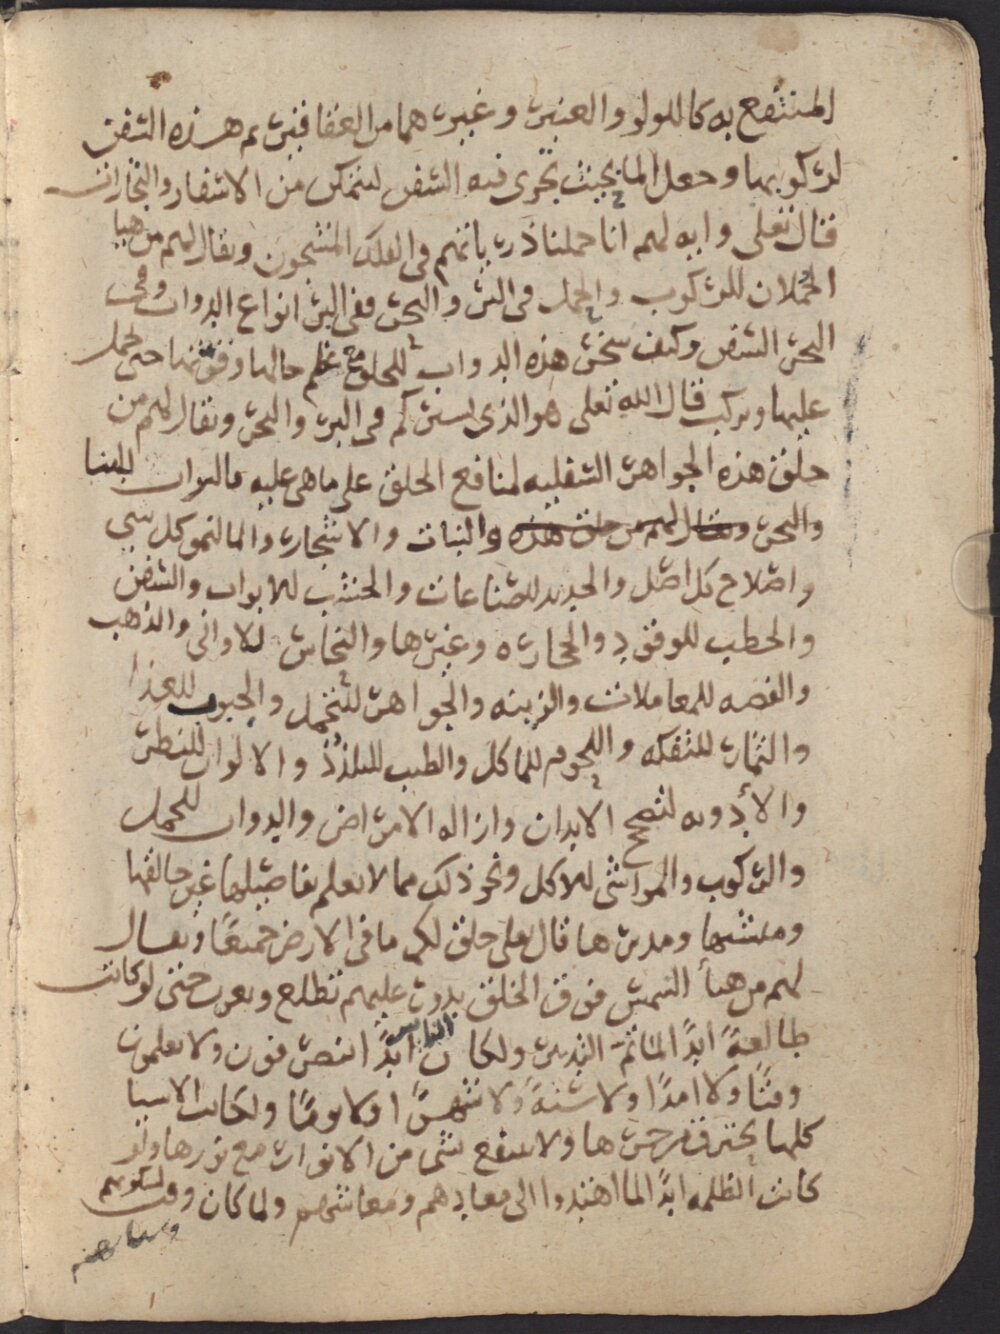 المنتفع به كاللولو والعنبر وغيرهما من العقاقير ثم هذه السفن
لركوبها وجعل الما بحيث تجرى فيه السفن ليتمكن من الاسفار والتجارات
قال تعلى وايه لهم انا حملنا ذرياتهم فى الفلك المشحون ويقال لهم من هيا
الحملان للركوب والحمل فى البر والبحر ففى البر انواع الدواب وفى
البحر السفن وكيف سخر هذه الدواب للخلق مع عظم حالها وقوتها حتى تحمل
عليها وتركب قال الله تعلى هو الذى يسيركم فى البر والبحر ويقال لهم من
خلق هذه الجواهر السفليه لمنافع الخلق على ما هى عليه كالتراب للبنا
والبحر ويقال لهم من خلق هذه والنبات والاشجار والما لنمو كل شى
واصلاح كل اصل والحديد للصناعات والخشب للابواب والسفن
والحطب للوقود والحجاره وغيرها والنحاس للاوانى والذهب
والفضه للمعاملات والزينه والجواهر للتجمل والحبوب للغذا
والثمار للتفكه واللحوم للماكل والطيب للتلذذ والالوان للنظر
والأدويه لتصحيح الابدان وازاله الامراض والدواب للحمل
والركوب والمواشى للاكل ونحو ذلك مما لا يعلم تفاصيلها غير خالقها
ومنشيها ومدبرها قال تعلى خلق لكم ما فى الارض جميعًا ويقال
لهم من هيأ الشمس فوق الخلق يدور عليهم تطلع وتغرب حتى لو كانت
طالعةً ابدًا لما تم التدبير ولكان الناس ابدًا ينصرفون ولا يعلمون
وقتًا ولا امدًا ولا سنةً ولا شهرًا ولا يومًا ولكانت الاشيا
كلها تحترق من حرها ولا ينتفع بشى من الانوار مع نورها ولو
كانت الظلمه ابدًا لما اهتدوا الى معادهم ومعاشهم ولما كان وقت لسكونهم